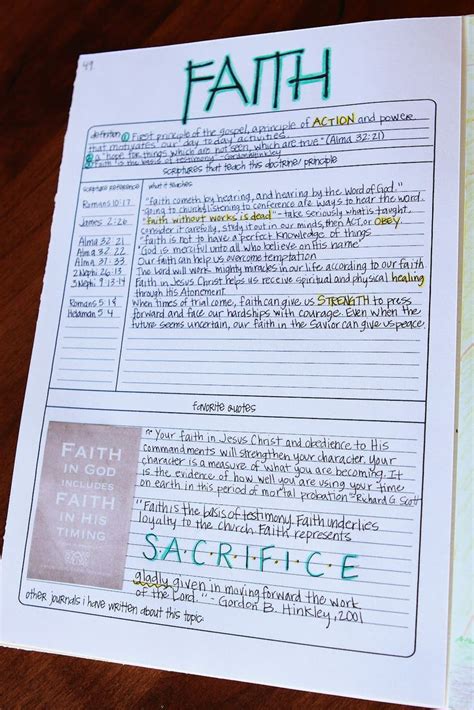 49.
FAITH
definition ① First principle of the gospel, a principle of ACTION and power
that motivates our day to day activities.
② a "hope for things which are not seen, which are true" (Alma 32:21)
③ Faith "is the basis of testimony" -
scriptures that teach this doctrine/principle
scripture reference what it teaches
"faith cometh by hearing, and hearing by the word of God."
Romans 10:17 going to church, listening to conference are ways to hear the word.
James 2:26 "Faith without works is dead" - take seriously what is taught,
consider it carefully, study it out in our minds, then ACT, or OBEY.
Alma 32:21 "faith is not to have a perfect knowledge of things"
Alma 32:22 God is merciful unto all who believe on His name"
Alma 37:33 Our faith can help us overcome temptation
2 Nephi 26:13 The Lord will work mighty miracles in our life according to our faith
3 Nephi 9:13-14 Faith in Jesus Christ helps us receive spiritual and physical healing
through His Atonement
Romans 5:1 When times of trial come, Faith can give us STRENGTH to press
Helaman 5:4 forward and face our hardships with courage. Even when the
future seems uncertain, our faith in the Savior can give us peace.
favorite quotes
"Your faith in Jesus Christ and obedience to His
commandments will strengthen your character. Your
character is a measure of what you are becoming. It
is the evidence of how well you are using your time
on earth in this period of mortal probation" - Richard G Scott
FAITH
IN GOD
INCLUDES
FAITH
IN HIS
TIMING
"Faith is the basis of testimony. Faith underlies
loyalty to the church. Faith represents
S.A.C.R.I.F.I.C.E
gladly given in moving forward the work
of the Lord." - Gordon B. Hinkley, 2001
other journals i have written about this topic: